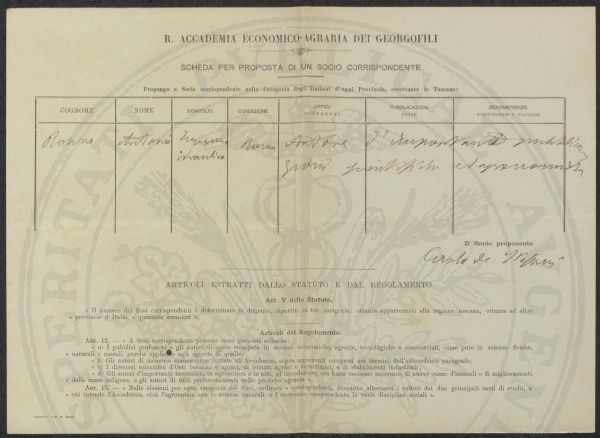 R. ACCADEMIA ECONOMICO-AGRARIA DEI GEORGOFILI
SCHEDA PER PROPOSTA DI UN SOCIO CORRISPONDENTE
Propongo a Socio corrispondente nella Categoria degli Italiani d'ogni Provincia, eccettuate le Toscane:
COGNOME NOME DOMICILIO CONDIZIONE UFFICI PUBBLICAZIONI BENEMERENZE
SOSTENUTI FATTE
Ronna Antonio Ingegnere Roma Autore d'importanti pubblica
idraulico zioni scientifiche ed agronomiche
Il Socio proponente
Carlo de
ARTICOLI ESTRATTI DALLO STATUTO E DAL REGOLAMENTO.
Art. V dello Statuto.
« Il numero dei Soci corrispondenti è determinato in dugento, ripartiti in tre categorie: ottanta appartenenti alla regione toscana, ottanta ad altre
« provincie d'Italia, e quaranta stranieri ».
Articoli del Regolamento.
ART. 12. — « A Soci corrispondenti possono esser proposti soltanto:
« a) I pubblici professori e gli autori di opere stampate in scienze economiche, agrarie, tecnologiche e commerciali, come pure in scienze fisiche,
« naturali e morali, perchè applicate agli oggetti di quelle;
« b) Gli autori di memorie manoscritte, inviate all'Accademia, sopra argomenti compresi nei termini dell'antecedente paragrafo;
« c) I direttori scientifici d'Orti botanici o agrari, di istituti agrari o tecnologici, o di stabilimenti industriali;
« d) Gli autori d'importanti invenzioni in agricoltura o in arti, gl'introduttori, con buon successo accertato, di nuove razze d'animali o di miglioramenti
« delle razze indigene, e gli autori di utili perfezionamenti nelle pratiche agrarie ».
ART. 15. — « Nelle elezioni per ogni categoria dei Soci, ordinari o corrispondenti, dovranno alternarsi i cultori dei due principali rami di studii, a
« cui intende l'Accademia, cioè l'agronomia con le scienze naturali e l'economia comprendente le varie discipline sociali ».